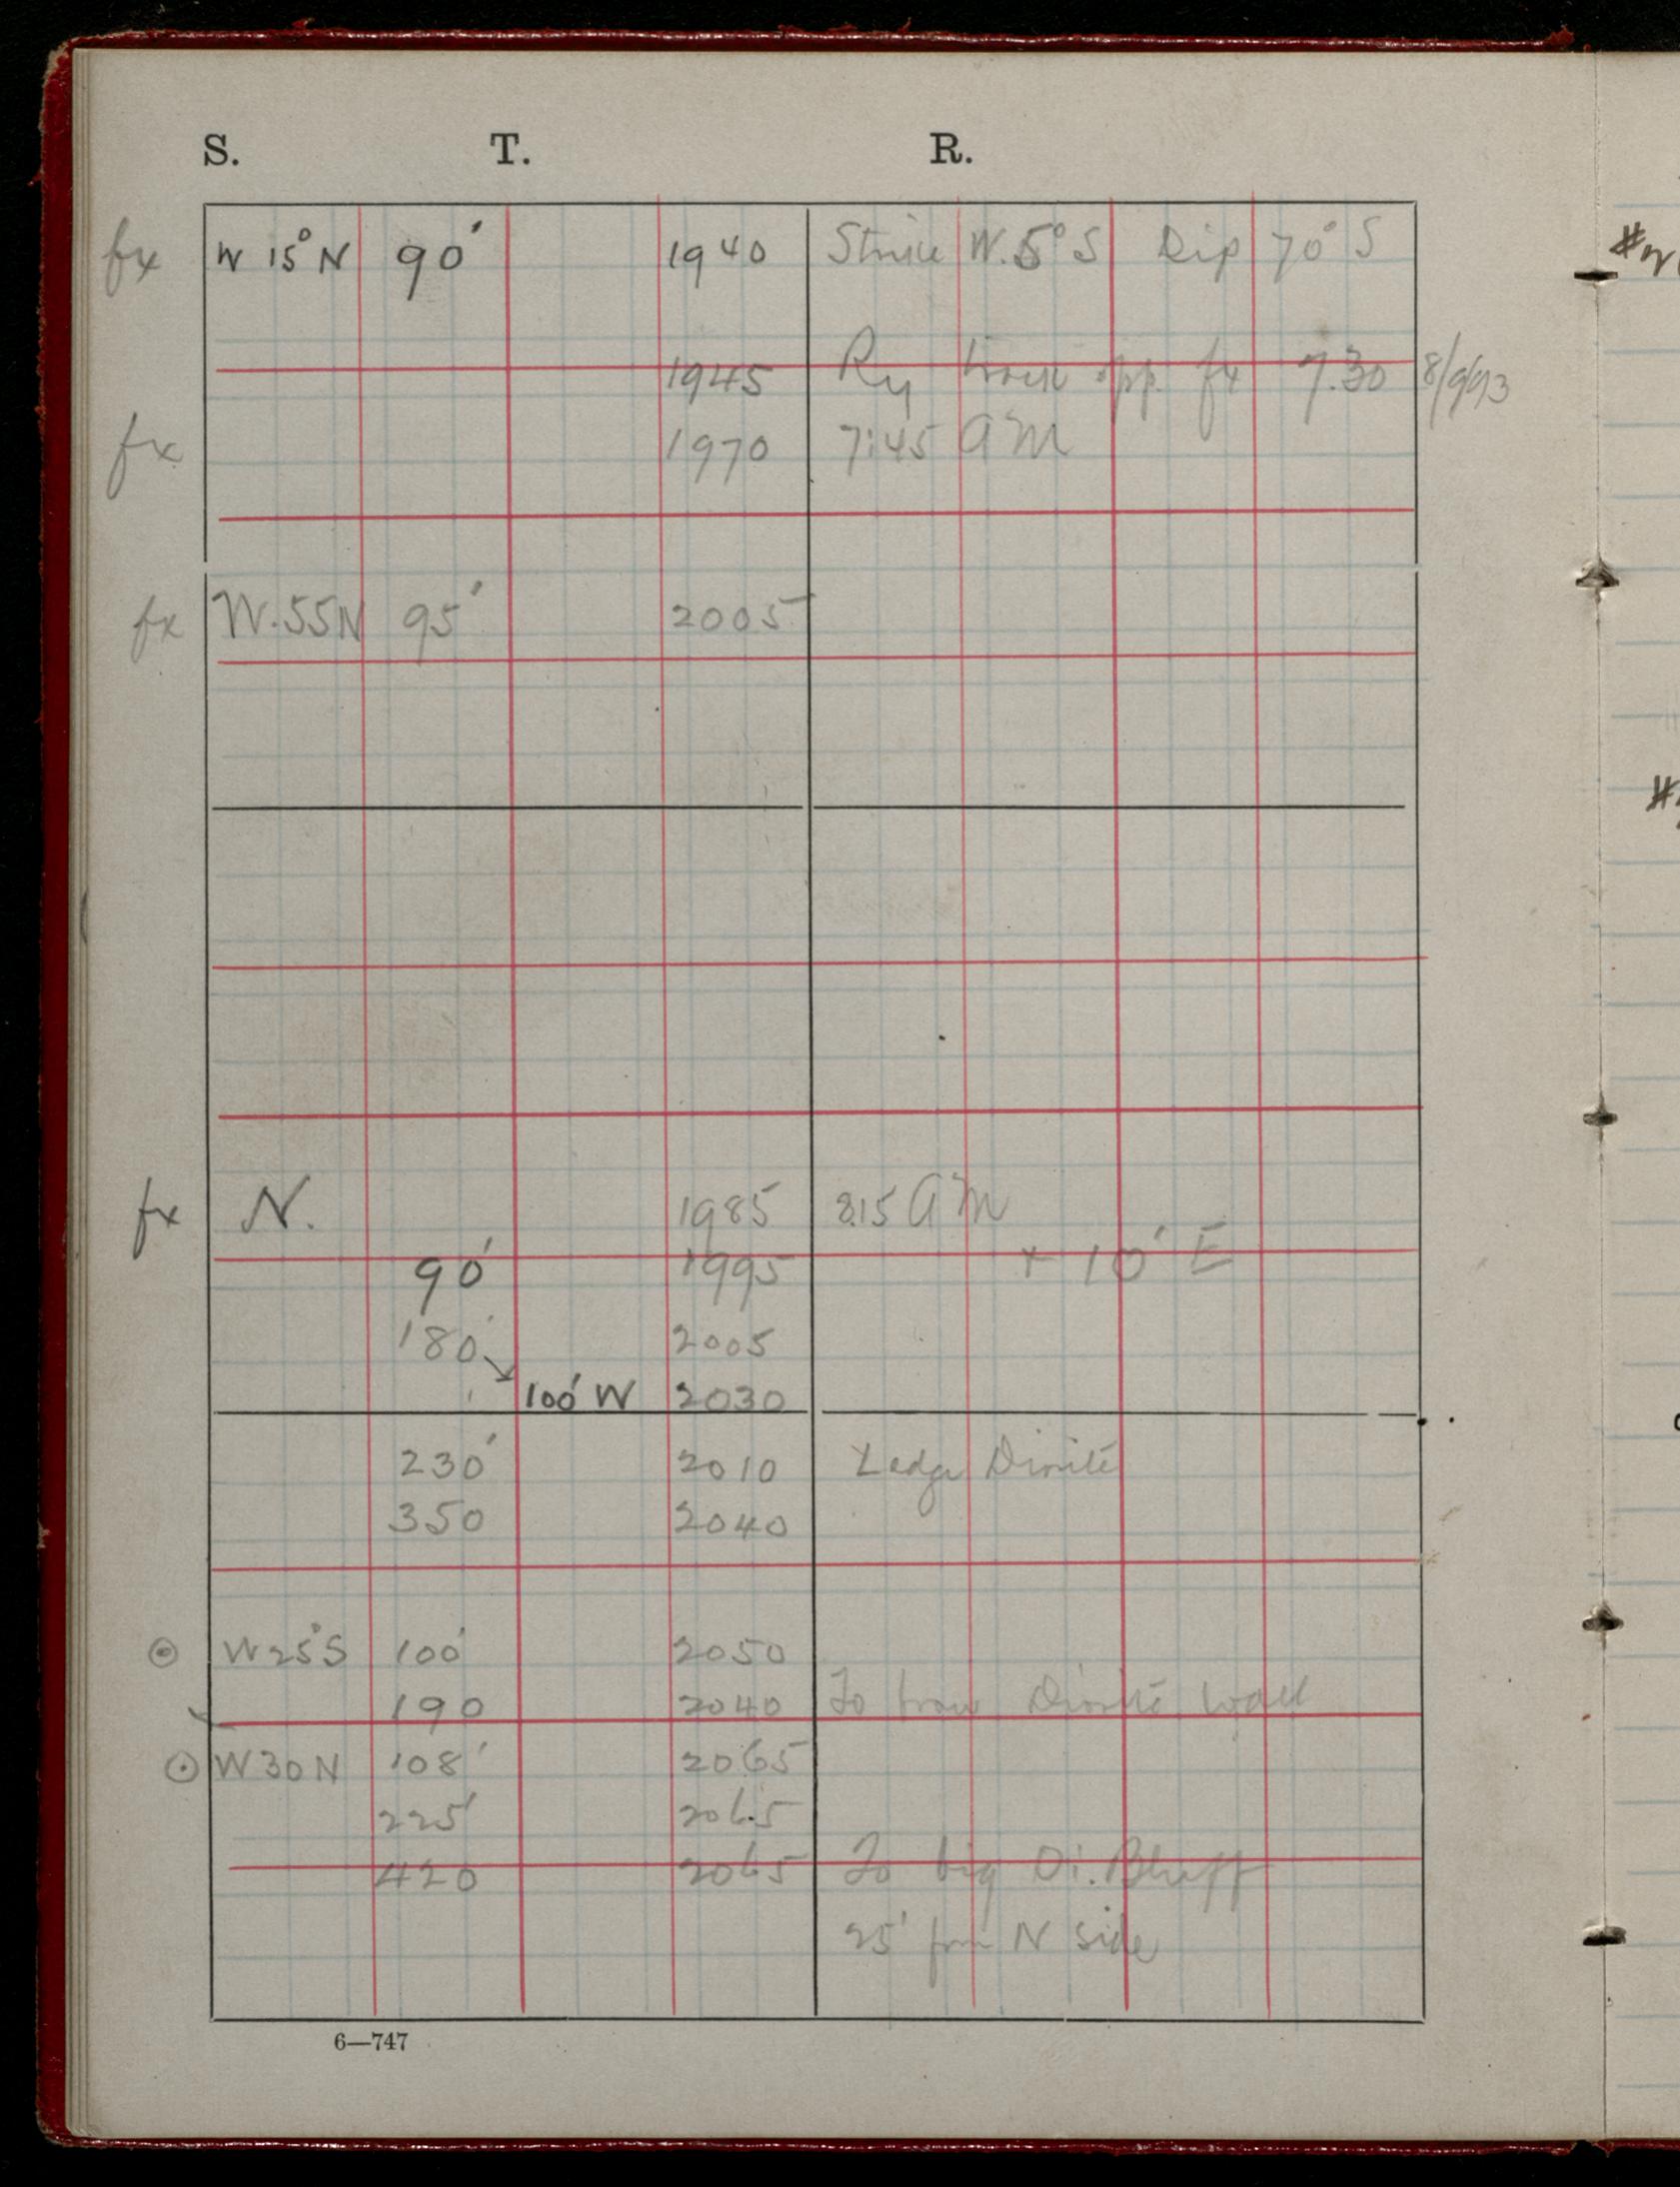 S. T. R.
fx W 15° N 90' 1940 Strike W. 5° S Dip 70° S
1945 Ry track opp. fx 7.30 8/9/93
fx 1970 7:45 AM
fx W. 55 N 95' 2005
fx N. 1985 8.15 AM
90' 1995 + 10' E
180' 2005
100' W 2030
230' 2010 Ledge Diorite
350 2040
W 25° S 100' 2050
190 2040 To brow Diorite wall
W 30 N 108' 2065
225' 2065
420 2065 To big Di. Bluff
25' from N side
6—747